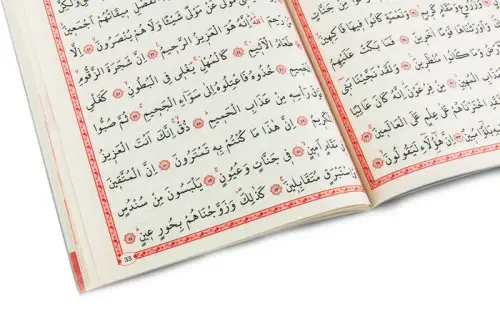 مِنْ جَنَّاتٍ
وَمَقَامٍ كَرِيمٍ وَنَعْمَةٍ كَانُوا فِيهَا فَاكِهِينَ
فَمَا بَكَتْ عَلَيْهِمُ
وَمَا كَانُوا مُنْظَرِينَ وَلَقَدْ نَجَّيْنَا بَنِي
الْمُهِينِ مِنْ فِرْعَوْنَ إِنَّهُ كَانَ عَالِيًا
اخْتَرْنَاهُمْ عَلَى عِلْمٍ عَلَى الْعَالَمِينَ
إِنَّ هَؤُلَاءِ لَيَقُولُونَ
الْفَصْلِ مِيقَاتُهُمْ أَجْمَعِينَ
مَوْلًى عَنْ مَوْلًى شَيْئًا وَلَا هُمْ يُنْصَرُونَ إِلَّا
رَحِمَ اللَّهُ إِنَّهُ هُوَ الْعَزِيزُ الرَّحِيمُ إِنَّ شَجَرَةَ الزَّقُّومِ
طَعَامُ الْأَثِيمِ كَالْمُهْلِ يَغْلِي فِي الْبُطُونِ كَغَلْيِ
خُذُوهُ فَاعْتِلُوهُ إِلَى سَوَاءِ الْجَحِيمِ ثُمَّ صُبُّوا
رَأْسِهِ مِنْ عَذَابِ الْحَمِيمِ ذُقْ إِنَّكَ أَنْتَ الْعَزِيزُ
الْكَرِيمُ إِنَّ هَذَا مَا كُنْتُمْ بِهِ تَمْتَرُونَ إِنَّ الْمُتَّقِينَ
مَقَامٍ أَمِينٍ فِي جَنَّاتٍ وَعُيُونٍ يَلْبَسُونَ مِنْ سُنْدُسٍ
وَإِسْتَبْرَقٍ مُتَقَابِلِينَ كَذَلِكَ وَزَوَّجْنَاهُمْ بِحُورٍ عِينٍ
33